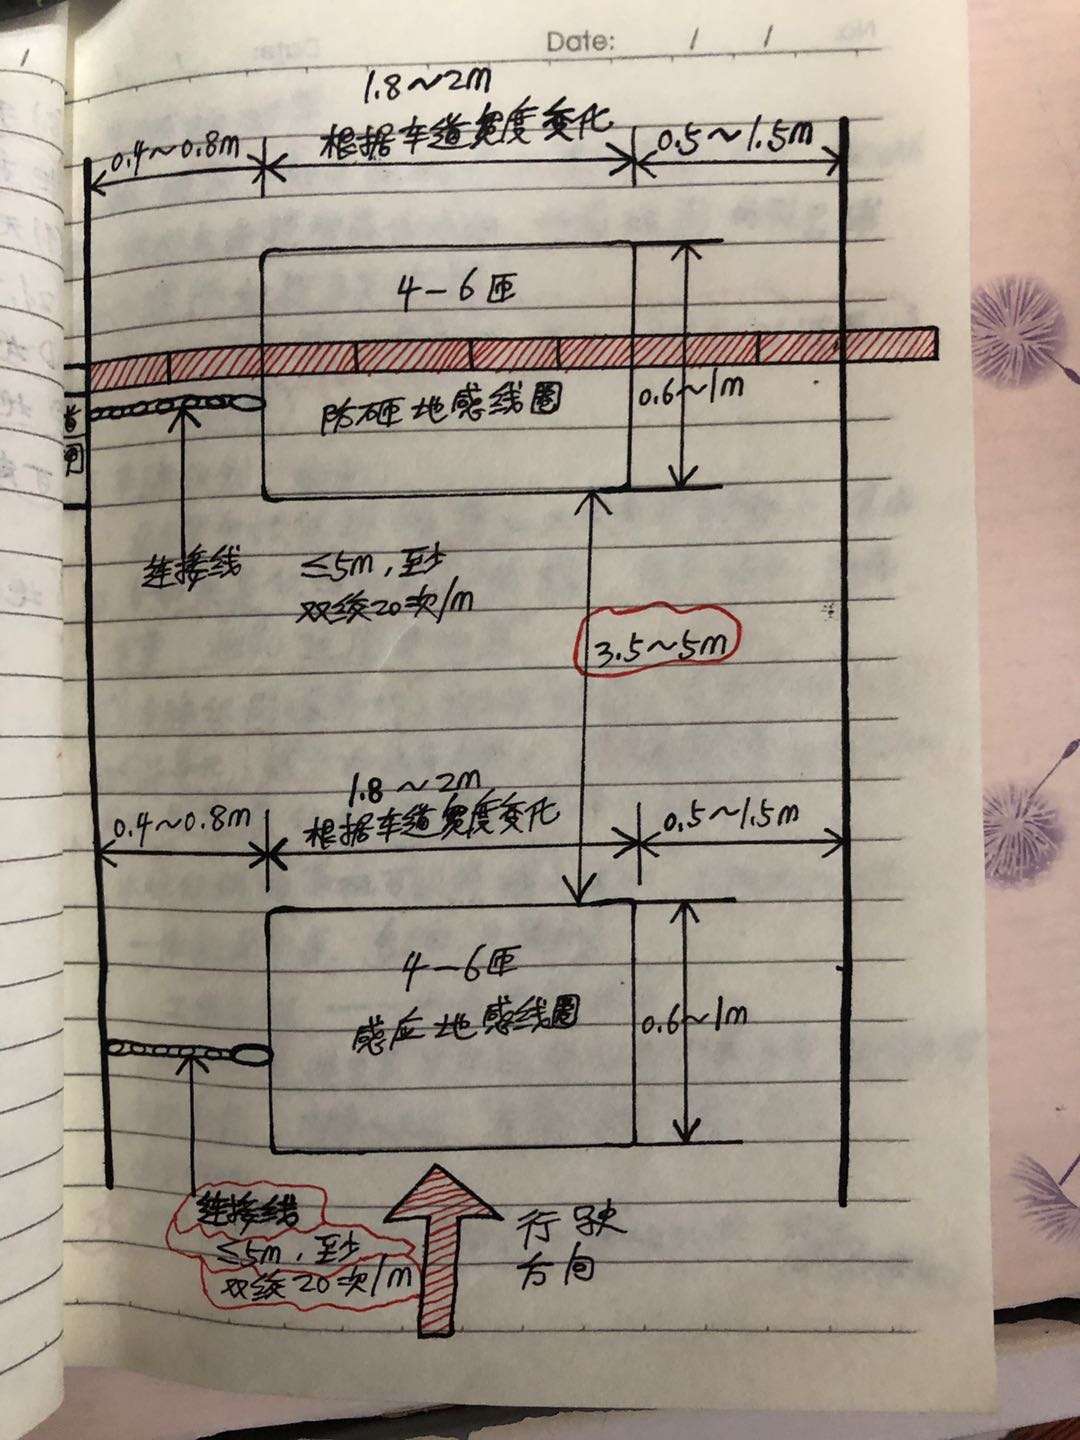 Date: / /
1.8~2m
0.4~0.8m
根据车道宽度变化
0.5~1.5m
4-6匝
防砸地感线圈
0.6~1m
连接线
≤5m,至少
双绞20次/m
3.5~5m
1.8~2m
0.4~0.8m
根据车道宽度变化
0.5~1.5m
4-6匝
感应地感线圈
0.6~1m
连接线
≤5m,至少
双绞20次/m
行驶
方向